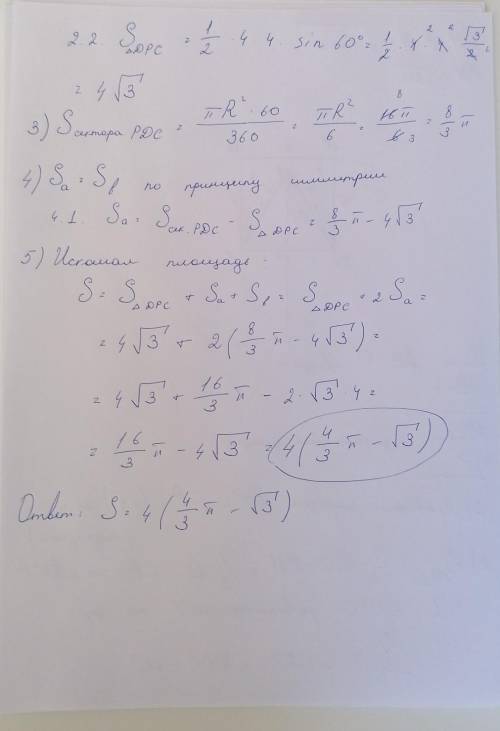 2.2. S△DPC = 1/2 · 4 · 4 · sin 60° = 1/2 · 4 · 4 · √3/2 =
= 4√3
3) Sсектора PDC = πR² · 60 / 360 = πR²/6 = 16π/6 = 8/3 π
4) Sa = Sb по принципу симметрии
4.1. Sa = Sсек.PDC - S△DPC = 8/3 π - 4√3
5) Искомая площадь:
S = S△DPC + Sa + Sb = S△DPC + 2Sa =
= 4√3 + 2(8/3 π - 4√3) =
= 4√3 + 16/3 π - 2 · √3 · 4 =
= 16/3 π - 4√3 = 4(4/3 π - √3)
Ответ: S = 4(4/3 π - √3)